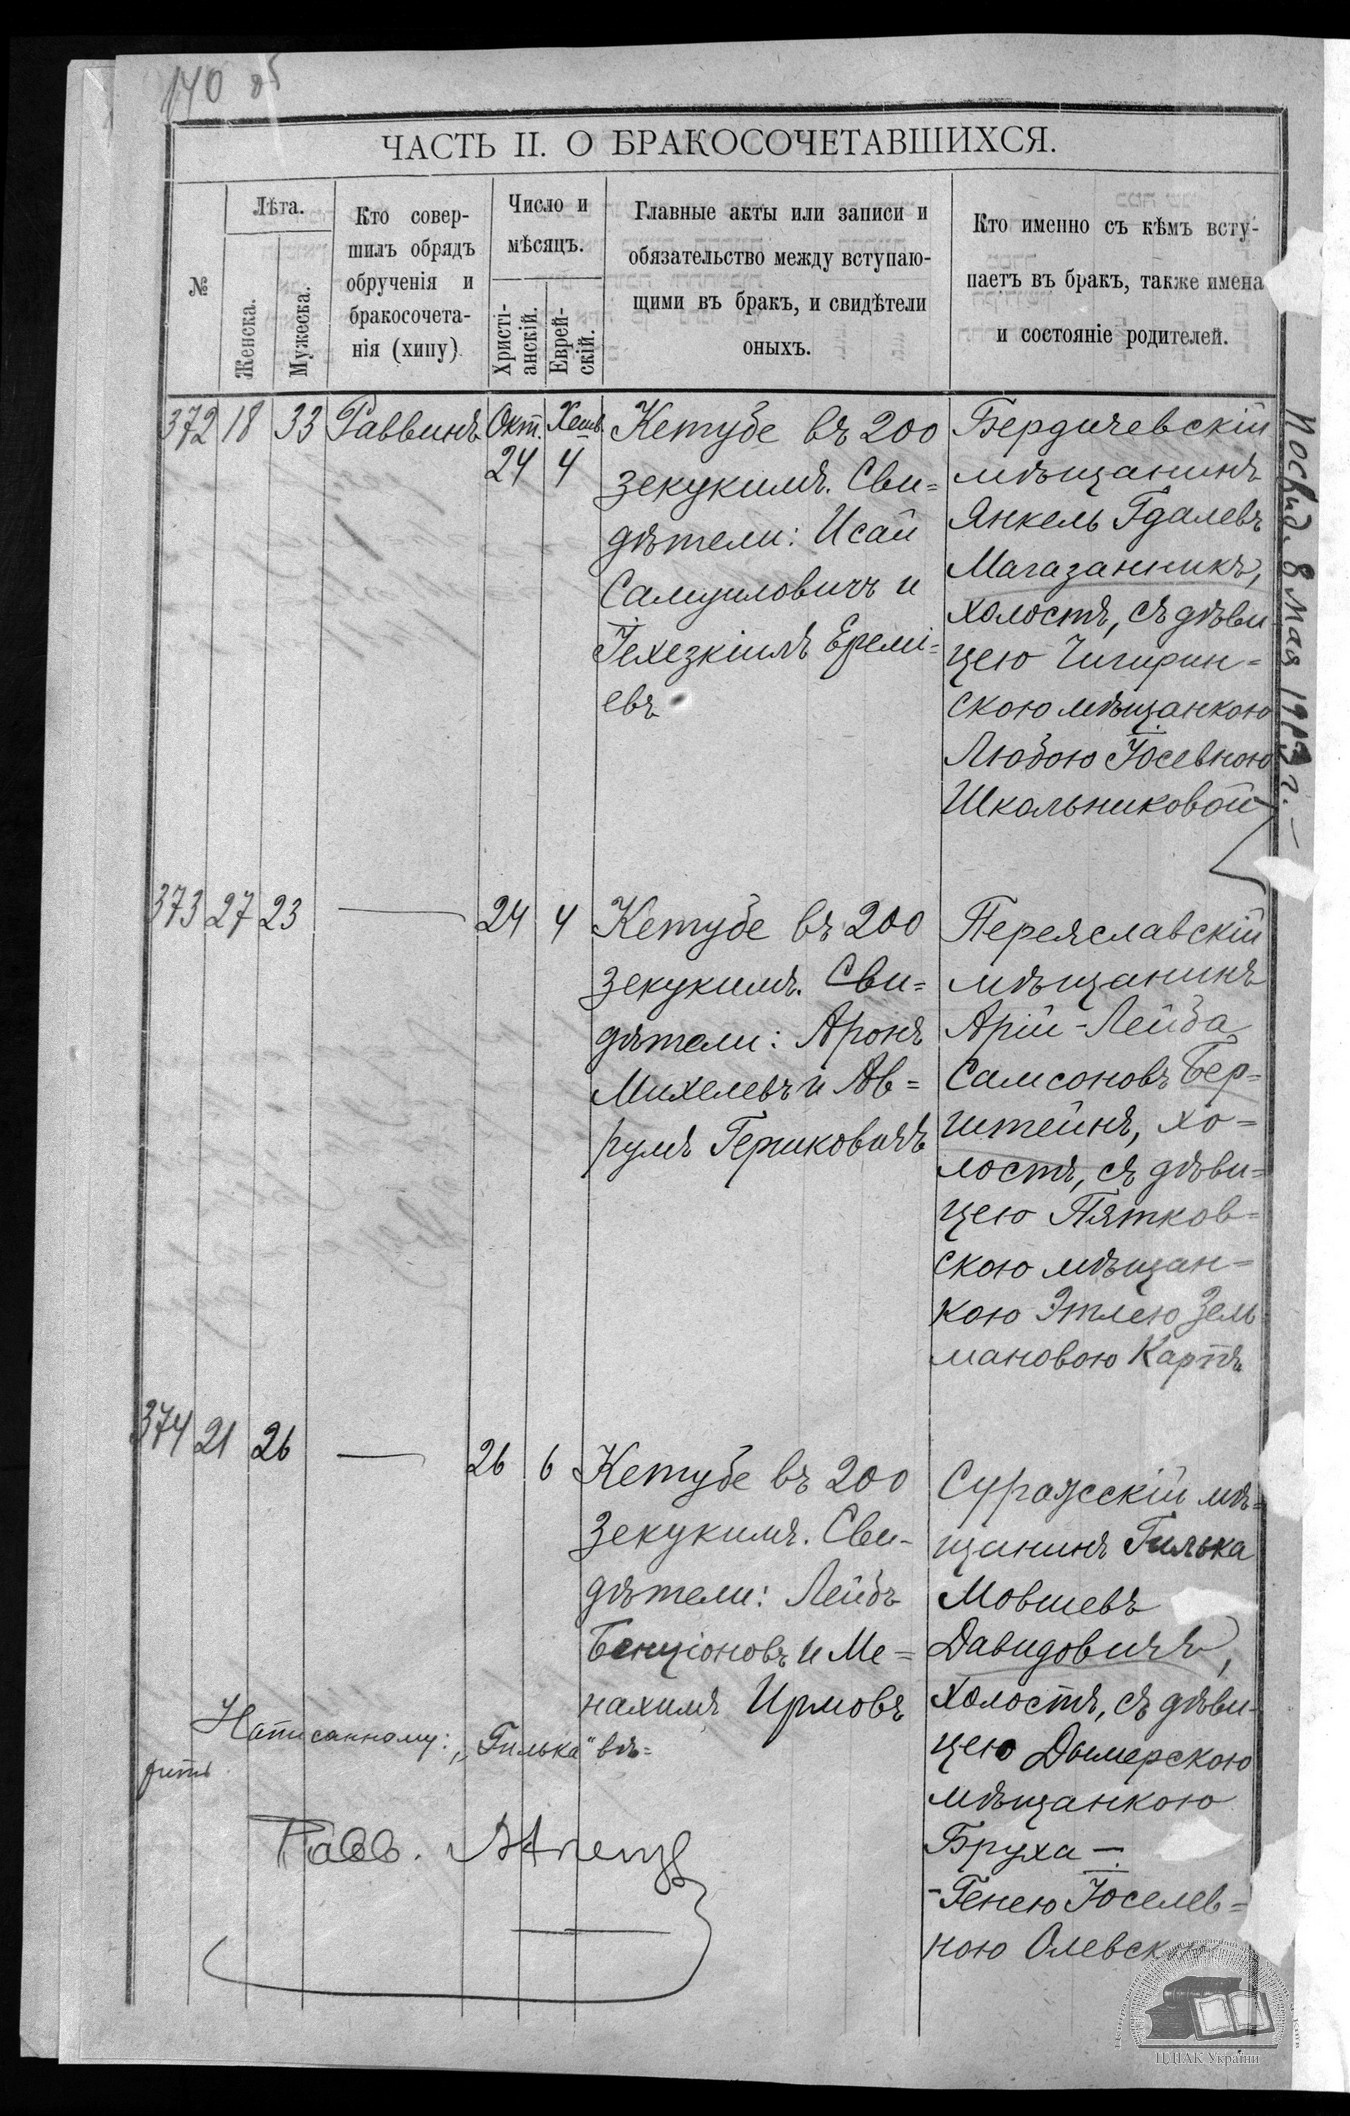 140 85
ЧАСТЬ II. О БРАКОСОЧЕТАВШИХСЯ.
№
Лѣта.
Женска.
Мужеска.
Кто совер-
шилъ обрядъ
обрученія и
бракосочета-
нія (хипу)
Число и
мѣсяцъ.
Христі-
анскій.
Еврей-
скій.
Главные акты или записи и
обязательство между вступаю-
щими въ бракъ, и свидѣтели
оныхъ.
Кто именно съ кѣмъ всту-
паетъ въ бракъ, также имена
и состояніе родителей.
372 18 33 Раввинъ Окт. 24 Хешв. 4
Кетубе въ 200
зекукимъ. Сви=
дѣтели: Исай
Самуиловичъ и
Іехезкіилъ Еремі=
евъ
Бердичевскій
мѣщанинъ
Янкель Гдалевъ
Магазанникъ,
холостъ, съ дѣви
цею Чигирин=
скою мѣщанкою
Любою Іосевною
Школьниковой
Посвид. 8 Мая 1913 г. –
373 27 23 — 24 4
Кетубе въ 200
зекукимъ. Сви=
дѣтели: Аронъ
Михелевъ и Ав=
румъ Гершковичъ
Переяславскій
мѣщанинъ
Арій-Лейба
Самсоновъ Бер=
штейнъ, хо=
лостъ, съ дѣви=
цею Пятков=
скою мѣщан=
кою Этлею Зель
мановою Картъ
374 21 26 — 26 6
Кетубе въ 200
зекукимъ. Сви-
дѣтели: Лейбъ
Бенціоновъ и Ме=
нахимъ Ирмовъ
Суражскій мѣ=
щанинъ Гилька
Мовшевъ
Давидовичъ,
холостъ, съ дѣви-
цею Дымерскою
мѣщанкою
Бруха –
-Генею Іоселев=
ною Олевск
Написанному: „Гилька" вѣ=
рить
Равв.
ЦДІАК України